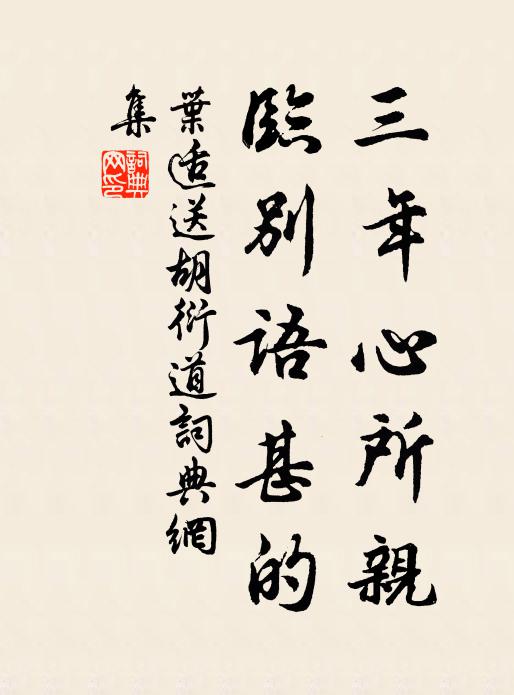 三年心所親
臨別語甚的
葉适送胡衍道詞典網
集
詞典
网印